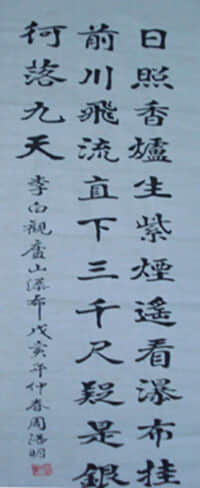 日照香爐生紫煙遙看瀑布挂
前川飛流直下三千尺疑是銀
河落九天
李白觀廬山瀑布戊亥年仲春周浩明